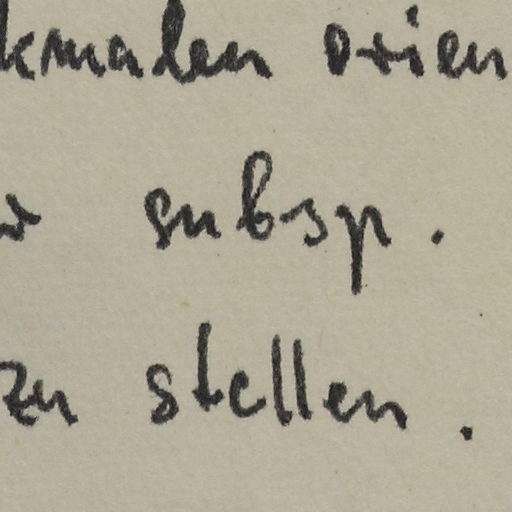 kmalen orien
r subsp.
zu stellen.